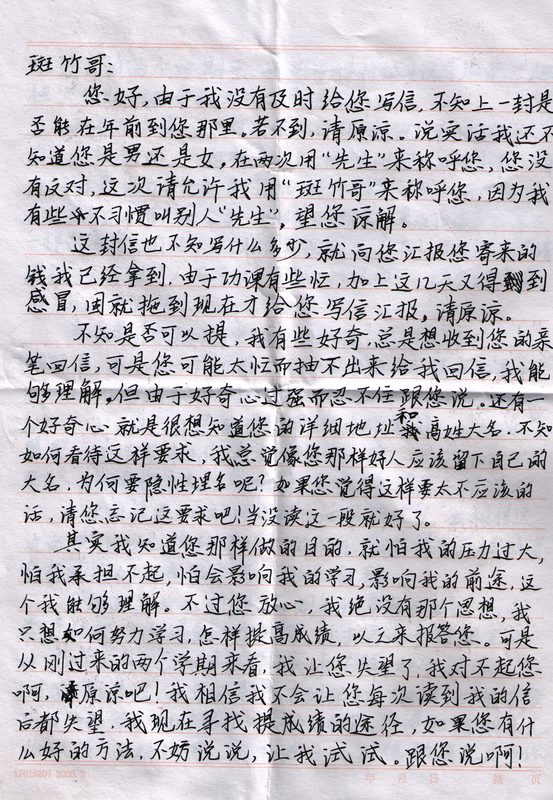 斑竹哥：
您好，由于我没有及时给您写信，不知上一封是
否能在年前到您那里。若不到，请原凉。说实话我还不
知道您是男还是女，在两次用“先生”来称呼您，您没
有反对，这次请允许我用“斑竹哥”来称呼您，因为我
有些不习惯叫别人“先生”，望您谅解。
这封信也不知写什么多少，就向您汇报您寄来的
钱我已经拿到，由于功课有些忙，加上这几天又得到
感冒，因就拖到现在才给您写信汇报，请原凉。
不知是否可以提，我有些好奇，总是想收到您的亲
笔回信，可是您可能太忙而抽不出来给我回信，我能
够理解。但由于好奇心过强而忍不住跟您说。还有一
个好奇心就是很想知道您的详细地址和高姓大名，不知
如何看待这样要求，我总觉像您那样好人应该留下自己的
大名，为何要隐性埋名呢？如果您觉得这样要太不应该的
话，请您忘记这要求吧！当没读这一段就好了。
其实我知道您那样做的目的，就怕我的压力过大，
怕我承担不起，怕会影响我的学习，影响我的前途，这
个我能够理解。不过您放心，我绝没有那个思想，我
只想如何努力学习，怎样提高成绩，以之来报答您。可是
从刚过来的两个学期来看，我让您失望了，我对不起您
啊，原凉吧！我相信我不会让您每次读到我的信
后都失望，我现在寻找提成绩的途径，如果您有什
么好的方法，不妨说说，让我试试。跟您说啊！
17015207 2005.2 年 月 日 第 页